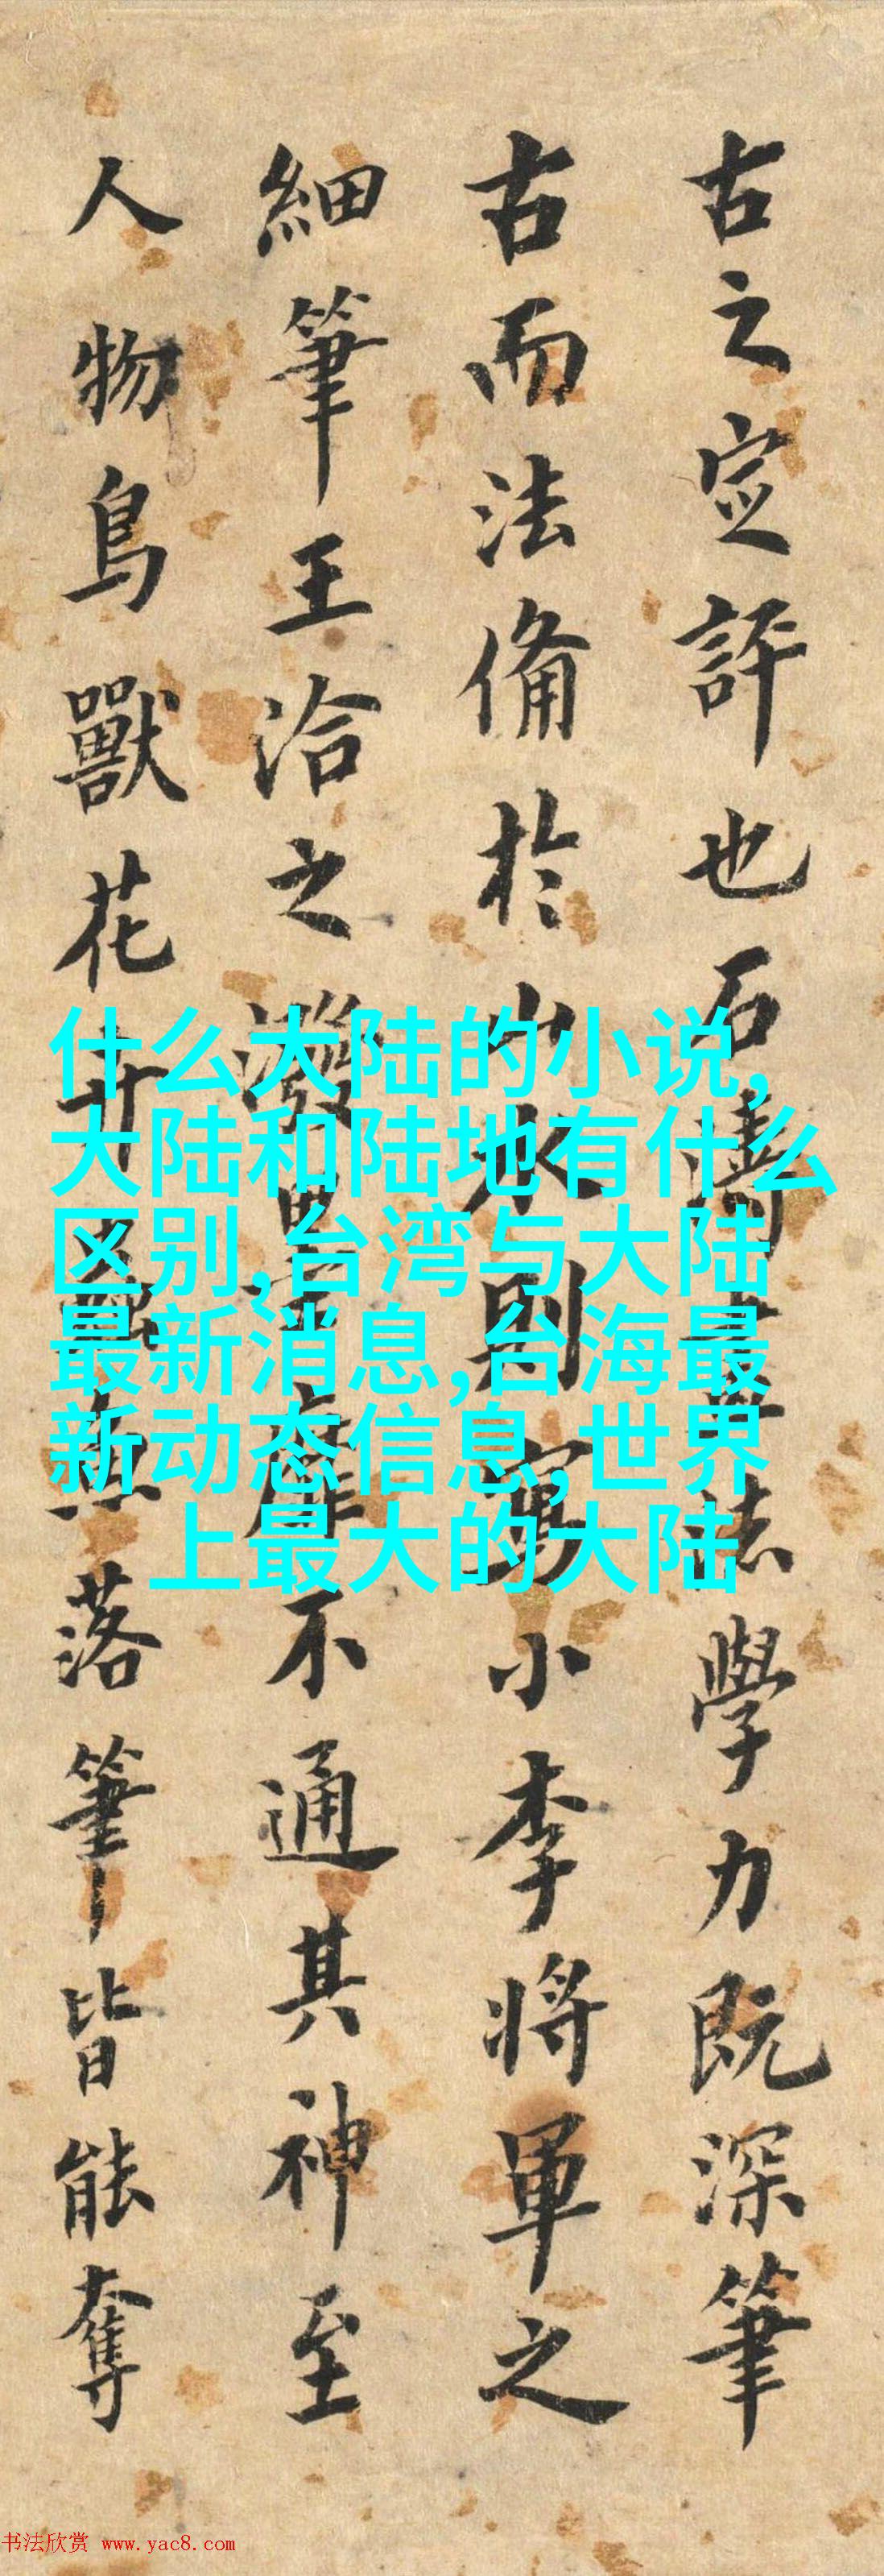 古之定評也石濤書法學力既深筆
古而法備於山水則寓小李將軍之
細筆王洽之潑墨靡不通其神至
人物鳥獸花卉蟲魚落筆皆能奪
什么大陆的小说,
大陆和陆地有什么
区别,台湾与大陆
最新消息,台海最
新动态信息,世界
上最大的大陆
书法欣赏 www.yac8.com